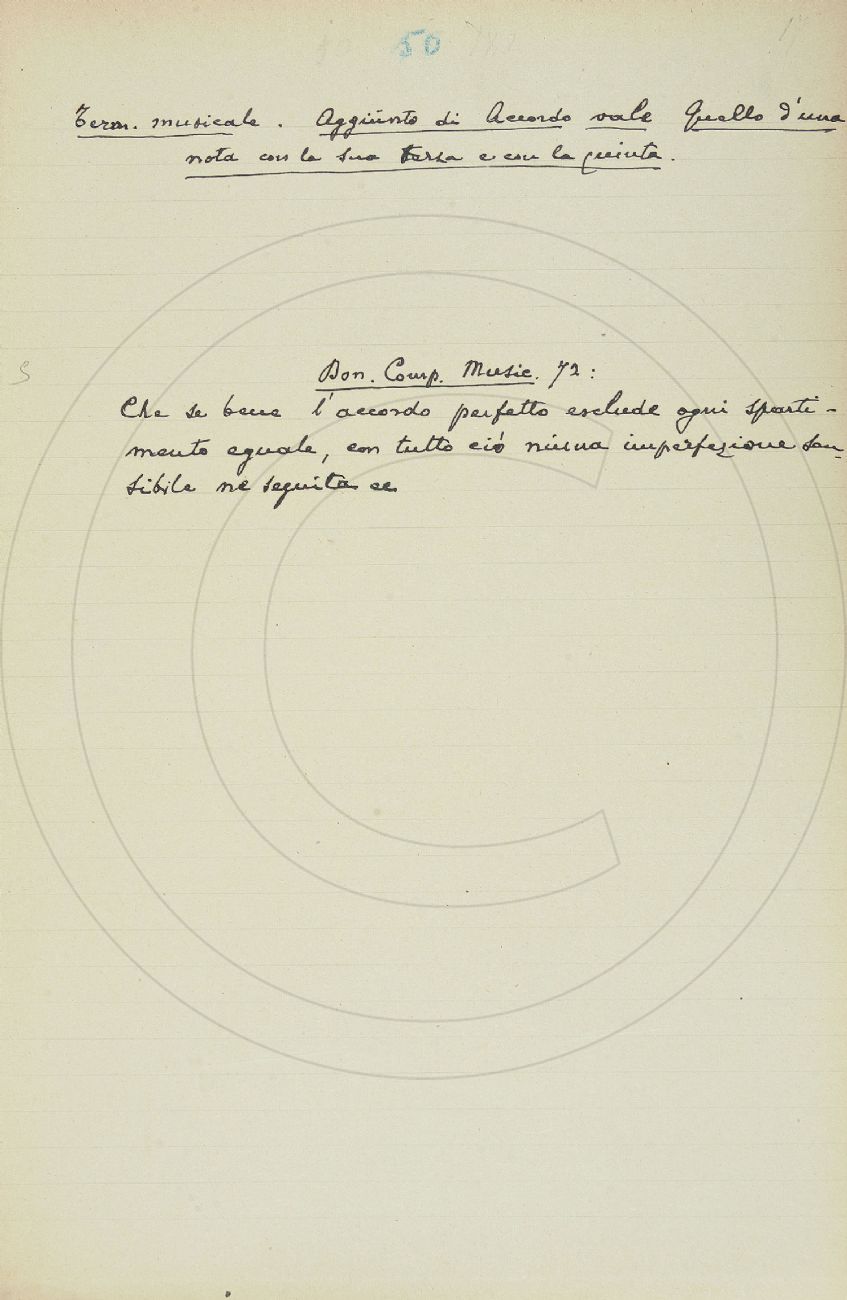 50
Term. musicale. Aggiunto di Accordo vale Quello d'una
nota con la sua terza e con la quinta.
Don. Comp. Music. 72:
Che se bene l'accordo perfetto esclude ogni sparti-
mento eguale, con tutto ciò niuna imperfezione sen-
sibile ne seguita ec